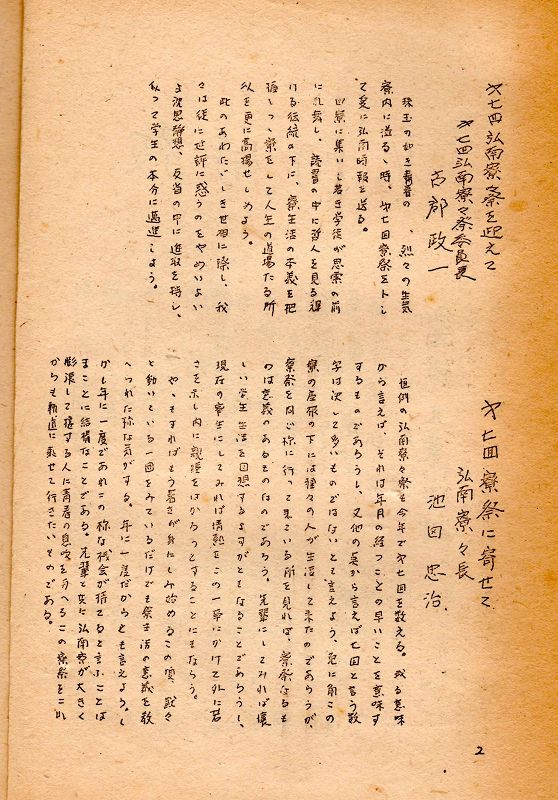 才七回弘南寮々祭を迎えて
才七回弘南寮々祭委員長
古郡政一
珠玉の如き青春の 、烈々の生気
寮内に溢るゝ時、才七回寮祭をトし
て茲に弘南時報を送る。
此寮に集いし若き学徒が思索の前
にれ舞し、読習の中に哲人を見る輝
ける伝統の下に、寮生活の本義を把
握しつゝ寮をして人生の道場たる所
以を更に高揚せしめよう。
此のあわたゞしき世相に際し、我
々は徒に世評に惑うのをやめいよい
よ沈思静想、反省の中に進取を持し、
以って学生の本分に邁進しよう。
才七回寮祭に寄せて
弘南寮々長
池田忠治
恒例の弘南寮々祭も今年で才七回を数える。或る意味
から言えば、それは年月の経つことの早いことを意味す
るものであろうし、又他の奌から言えば七回と言う数
字は決して多いものではないとも言えよう、兎に角この
寮の屋根の下には種々の人が生活して来たのであらうが、
寮祭を同じ様に行って来ている所を見れば、寮祭なるも
のは意義のあるものなのであろう。先輩にしてみれば懐
しい学生生活を回想するよすがともなることであろうし、
現在の寮生にしてみれば情熱をこの一事にかけて外に若
さを示し内に親睦をはかろうとすることにもなろう。
やゝもすればもう暑さが身にしみ始めるこの頃、黙々
と動いている一団をみているだけでも祭生活の意義を教
へられた様な気がする。年に一度だからとも言えよう。し
かし年に一度であれこの様な機会が持てると言ふことは
まことに結構なことである。先輩と共に弘南寮が大きく
膨漲して接する人に青春の息吹を与へるこの寮祭をこれ
からも軌道に乗せて行きたいものである。
2